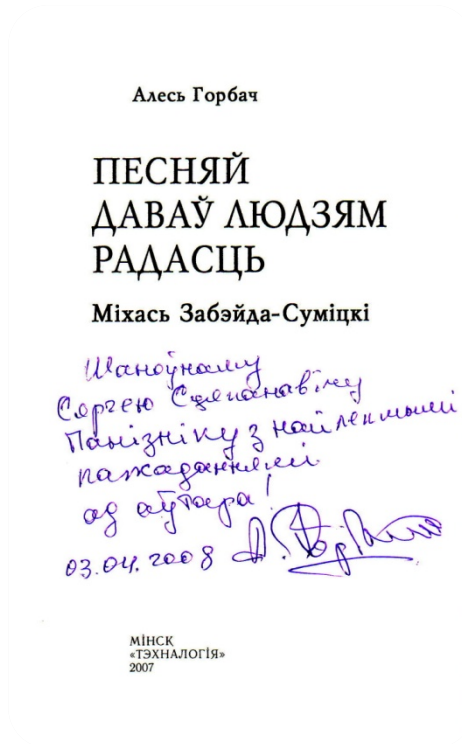 Алесь Горбач
ПЕСНЯЙ
ДАВАЎ ЛЮДЗЯМ
РАДАСЦЬ
Міхась Забэйда-Суміцкі
Шаноўнаму
Сяргею Сцяпанавічу
Панізніку з найлепшымі
пажаданнямі
ад аўтара!
03.04.2008 А. Горбач
МІНСК
«ТЭХНАЛОГІЯ»
2007